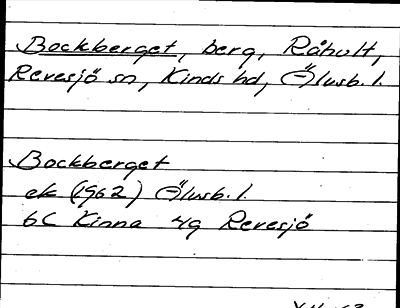 Bockberget, berg, Råhult,
Revesjö sn, Kinds hd, Älvsb. l.
Bockberget
ek (1962) Älvsb. l.
6C Kinna 4g Revesjö